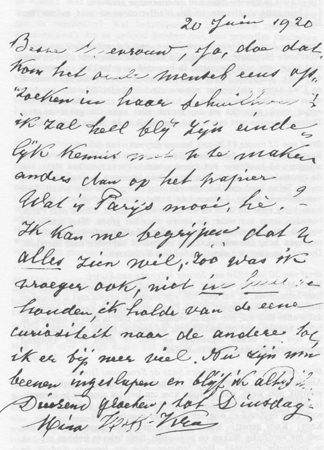 20 Juin 1920
Beste Mevrouw, Ja, doe dat.
Kom het oude mensch eens op-
zoeken in haar schuilhoek
ik zal heel blij zijn einde-
lijk kennis met U te maken
anders dan op het papier
Wat is Parijs mooi, hè?
Ik kan me begrijpen dat U
alles zien wil, zóó was ik
vroeger ook, niet in
houden, ik holde van de eene
curiositeit naar de andere tot
ik er bij neer viel. Nu zijn mn
beenen ingeslapen en blijf ik altijd
Duizend groeten, tot Dinsdag